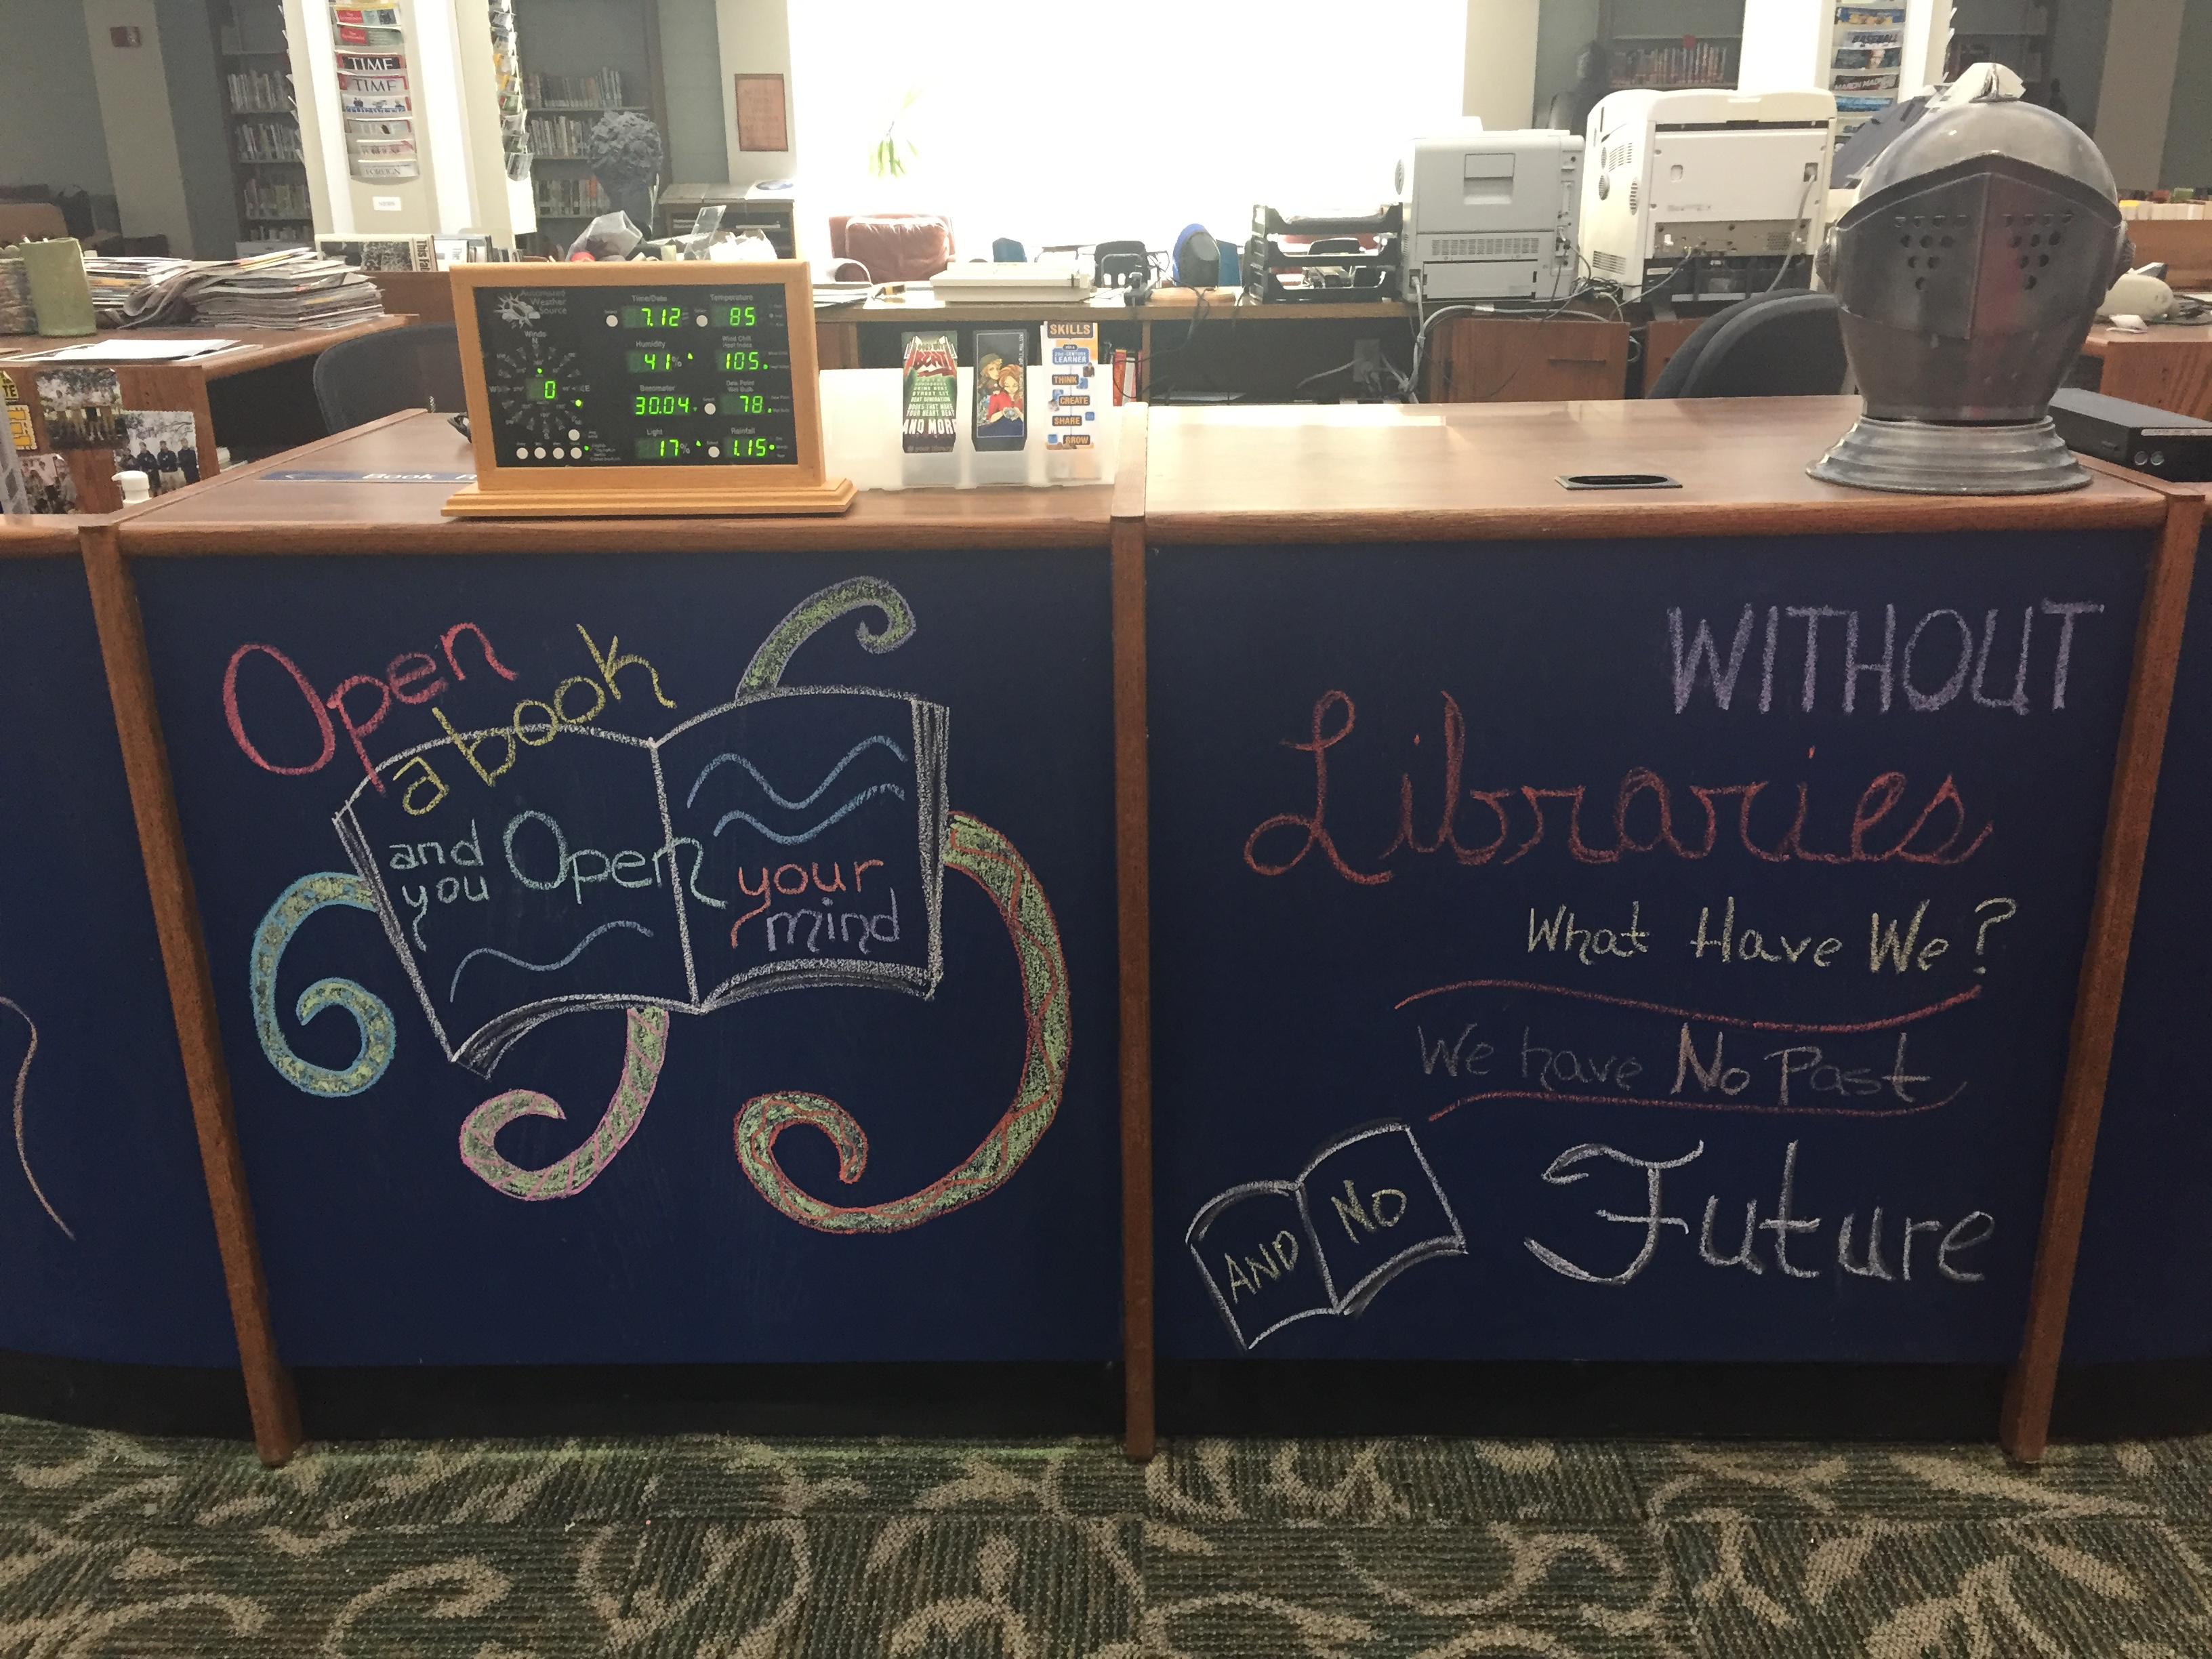 TIME
TIME
FOREIGN
BASEBALL
MARCH MADNESS
Automated
Weather
Source
Time/Date
7.12
Temperature
85
Winds
N
W
E
0
Humidity
41%
Wind Chill
Heat Index
105.
Barometer
30.04
78.
Light
17%
Rainfall
1.15
Book
BEAT
BOOKS THAT MAKE
YOUR HEART BEAT
AND MORE
SKILLS
LEARNER
THINK
CREATE
SHARE
GROW
Open
a book
and
you Open your
mind
WITHOUT
Libraries
What Have We?
We have No Past
AND NO Future